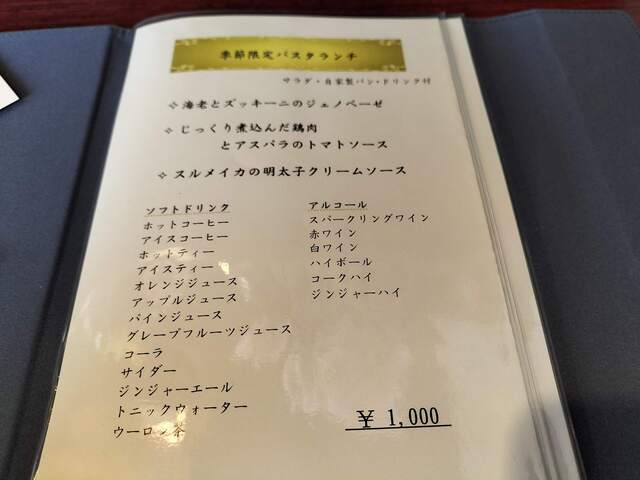 季節限定パスタランチ
サラダ・自家製パン・ドリンク付
✧海老とズッキーニのジェノベーゼ
✧じっくり煮込んだ鶏肉
とアスパラのトマトソース
✧スルメイカの明太子クリームソース
ソフトドリンク
ホットコーヒー
アイスコーヒー
ホットティー
アイスティー
オレンジジュース
アップルジュース
パインジュース
グレープフルーツジュース
コーラ
サイダー
ジンジャーエール
トニックウォーター
ウーロン茶
アルコール
スパークリングワイン
赤ワイン
白ワイン
ハイボール
コークハイ
ジンジャーハイ
￥1,000